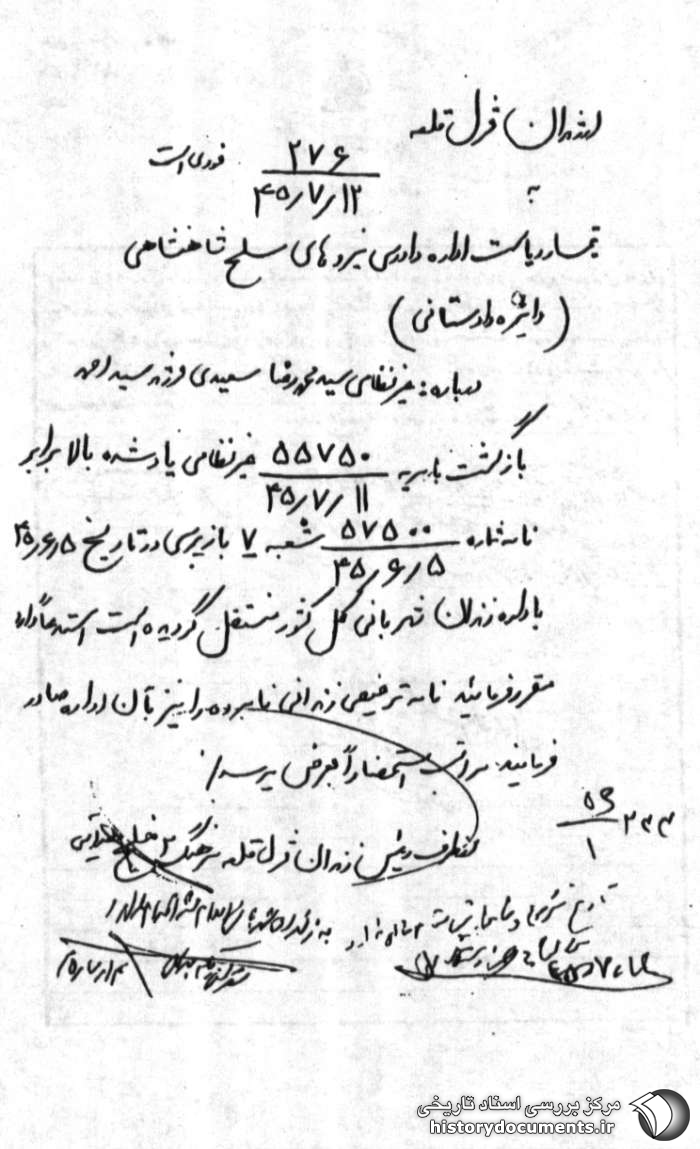 از زندان قزل قلعه
۲۷۶
۴۵/۷/۱۲
فوری است
به
تیمسار ریاست اداره دادرسی نیروهای مسلح شاهنشاهی
(دایره دادستانی)
درباره: غیرنظامی سید محمدرضا سعیدی فرزند سید احمد
بازگشت به ۵۵۷۵۰ غیرنظامی یاد شده بالا برابر
۴۵/۷/۱۱
نامه شماره ۵۷۵۰۰ شعبه ۷ بازپرسی در تاریخ ۴۵/۶/۵
۴۵/۶/۵
باداره زندان شهربانی کل کشور منتقل گردیده است استدعا دارد
مقرر فرمائید نامه ترخیصی زندانی نامبرده را نیز بآن اداره صادر
فرمایند. مراتب استحضاراً بعرض میرسد/
از طرف رئیس زندان قزل قلعه سرهنگ ۲
مرکز بررسی اسناد تاریخی
historydocuments.ir